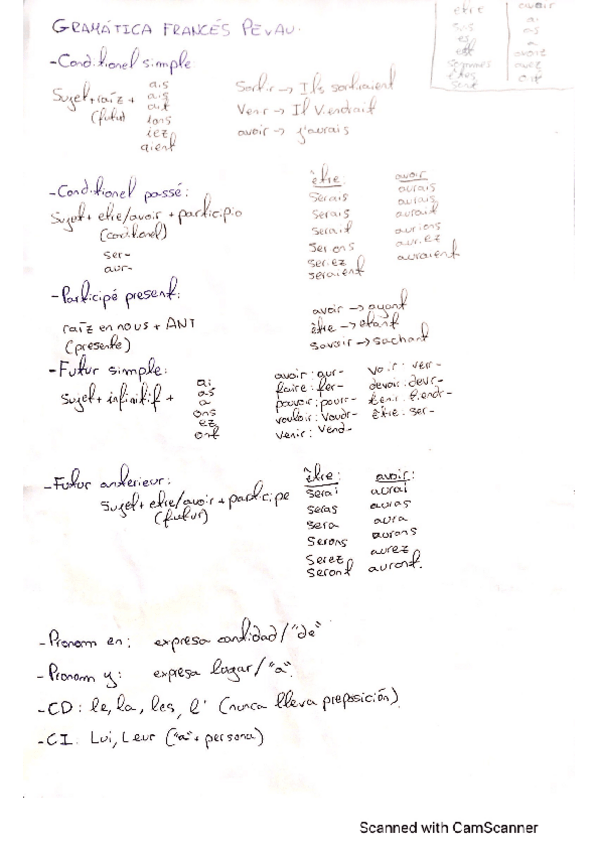 GRAMÁTICA FRANCÉS PEvAU.
être avoir
suis ai
es as
est a
sommes avons
êtes avez
sont ont
-Conditionel simple
Sujet + raíz + (futur)
ais
ais
ait
ions
iez
aient
Sortir → Ils sortiraient
Venir → Il Viendrait
avoir → j'aurais
-Conditionel passé:
Sujet + etre/avoir + participio
(conditionel)
ser-
aur-
être: avoir
Serais aurais
Serais aurais
Serait aurait
Serions aurions
Seriez auriez
seraient auraient
-Participé present:
raíz en nous + ANT
(presente)
avoir → ayant
être → etant
savoir → sachant
-Futur simple:
Sujet + infinitif +
ai
as
a
ons
ez
ont
avoir: aur- voir: verr-
faire: fer- devoir: devr-
pouvoir: pourr- tenir: tiendr-
vouloir: Voudr- être: ser-
venir: Vend-
-Futur anterieur:
Sujet + etre/avoir + participe
(futur)
être: avoir:
Serai aurai
seras auras
sera aura
Serons aurons
Serez aurez
Seront auront.
-Pronom en: expresa cantidad/"de"
-Pronom y: expresa lugar/"a"
-CD: le, la, les, l' (nunca lleva preposición)
-CI. Lui, Leur ("a" + persona)
Scanned with CamScanner